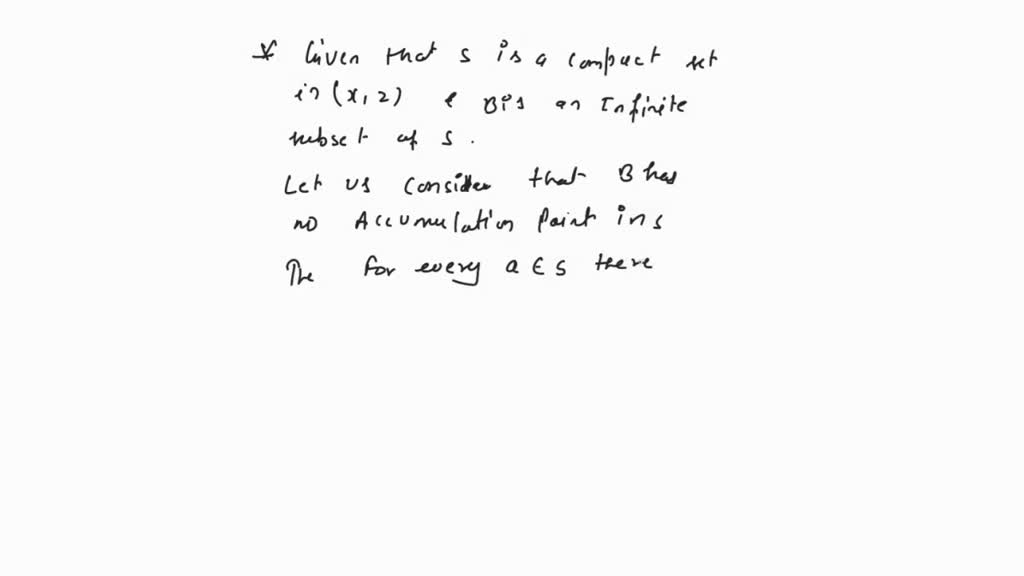 * Given that s is a compact set
in (x, 2) & B is an Infinite
subset of s.
Let us consider that B has
no Accumulation Point in s
The for every a ∈ s there